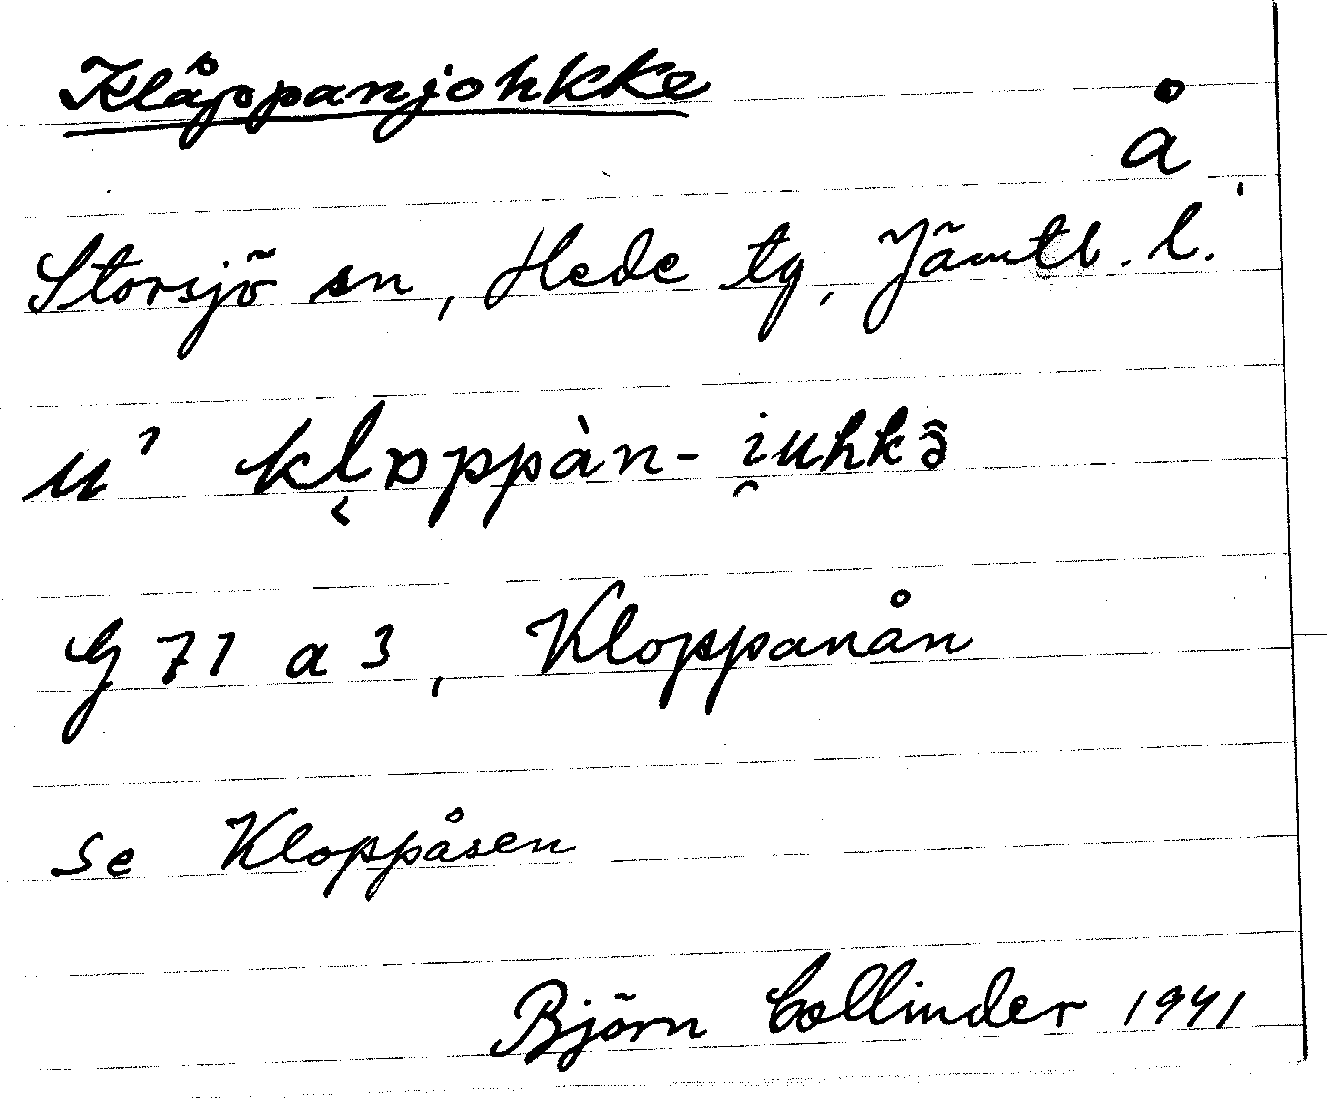 Klåppanjohkke
å
Storsjö sn, Hede tg, Jämtl. l.
u' kl̬ɒppàn-i̯uhkə̑
G 71 a 3, Kloppanån
se Kloppåsen
Björn Collinder 1941